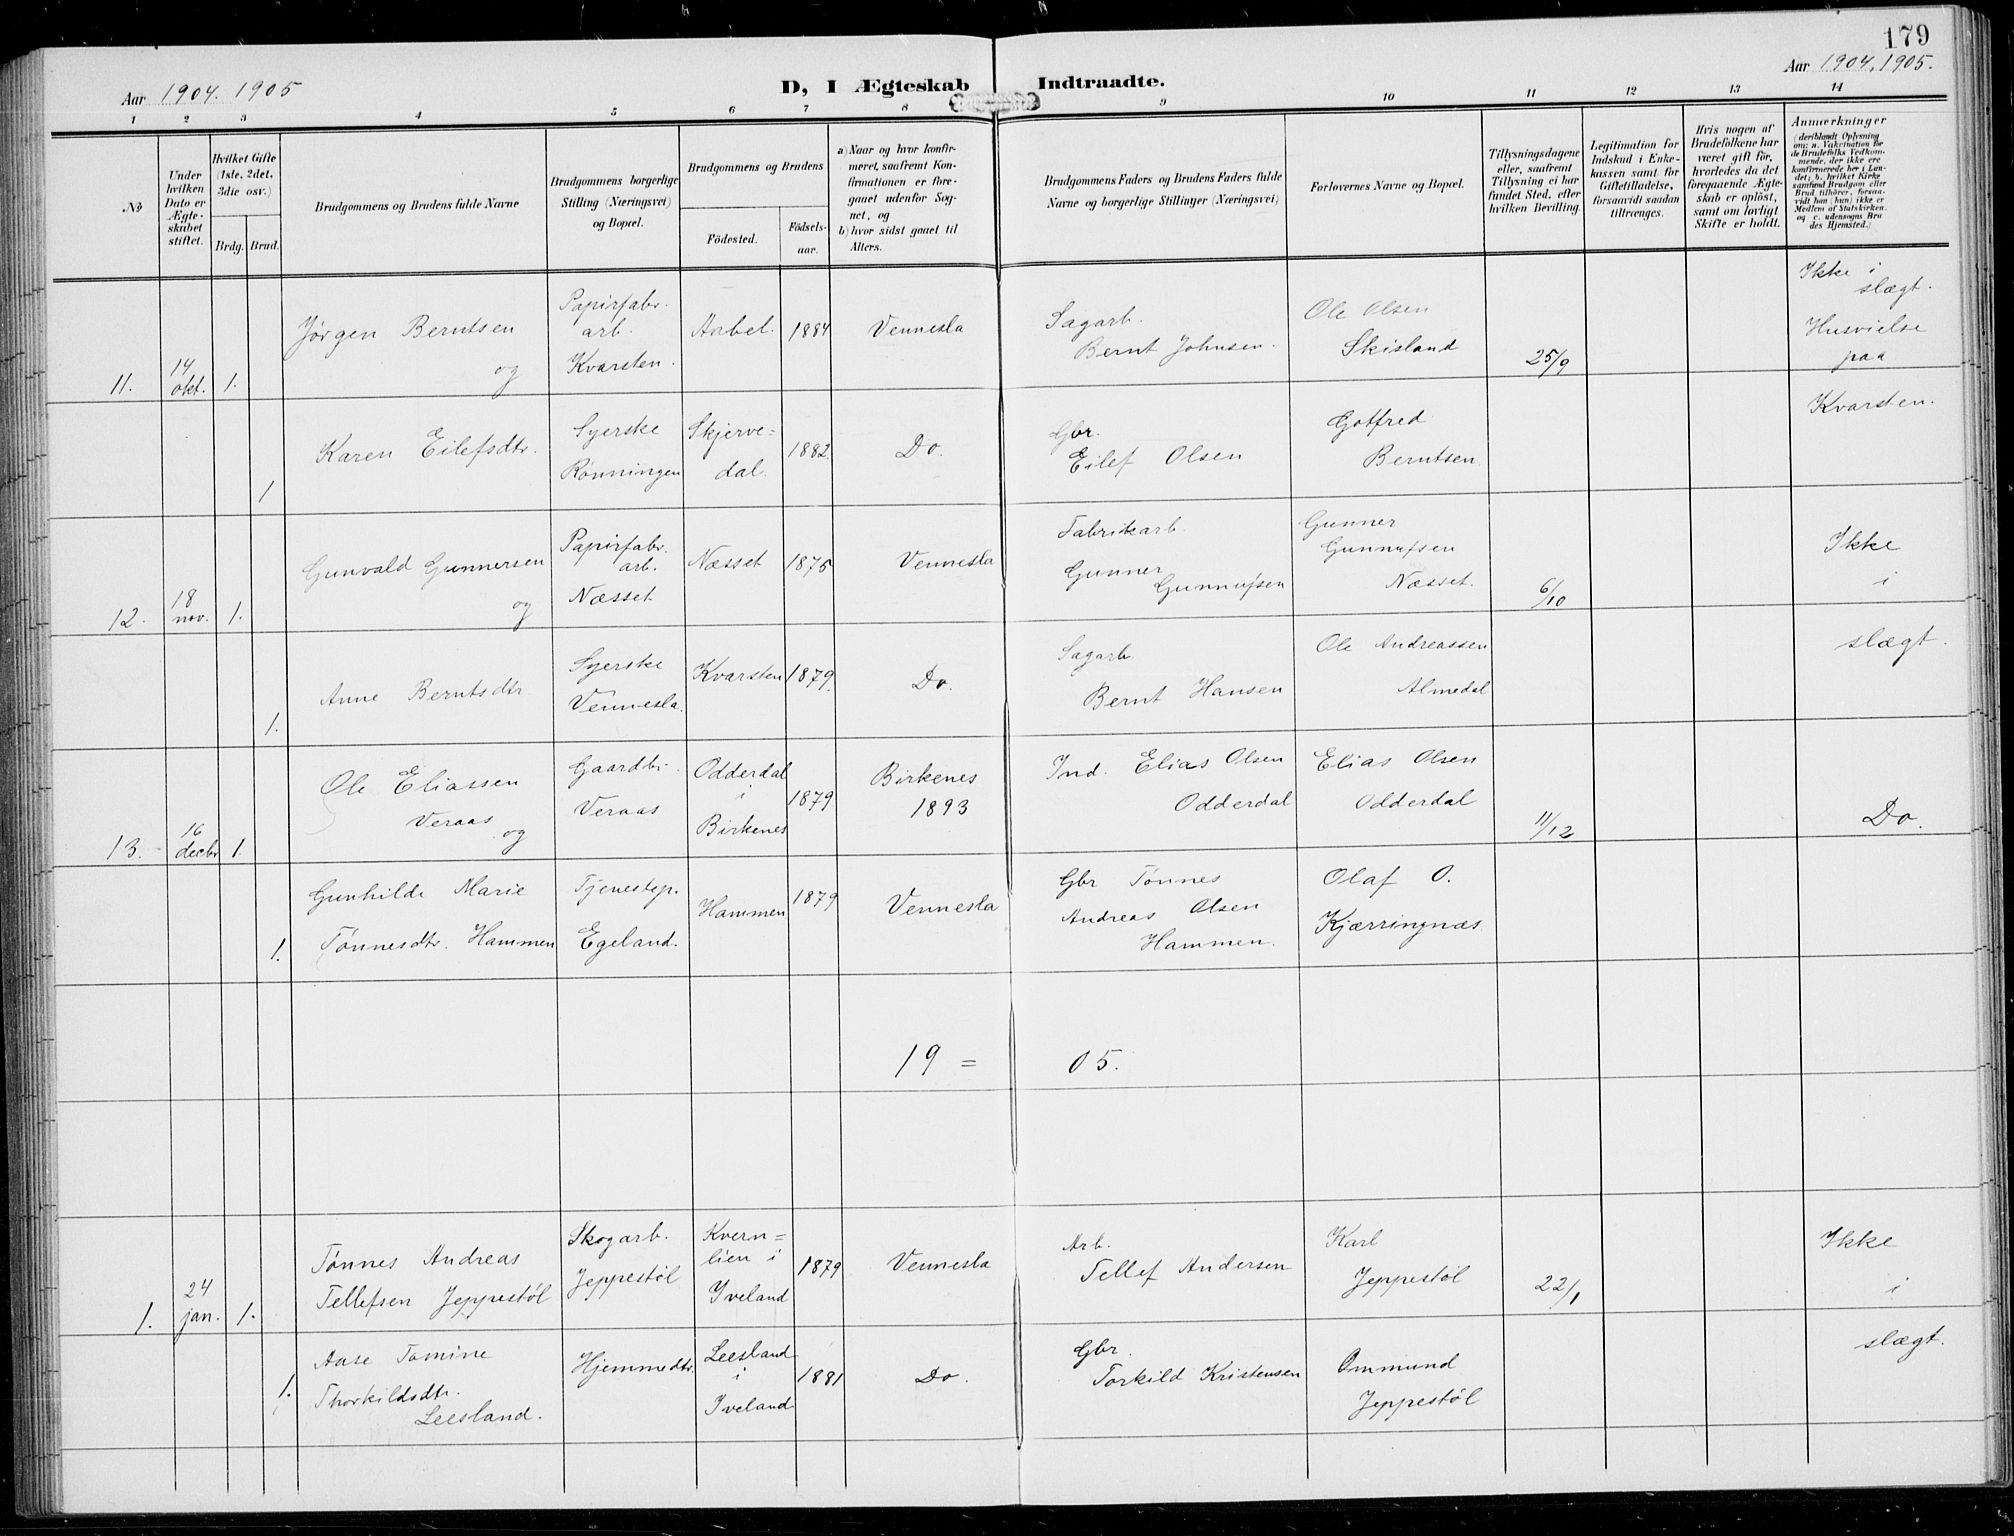 179
Aar 1904. 1905
D, I Ægteskab Indtraadte.
Aar 1904, 1905.
1 2 3 4 5 6 7 8 9 10 11 12 13 14
№
Under
hvilken
Dato er
Ægte-
skabet
stiftet.
Hvilket Gifte
(1ste, 2det,
3die osv.)
Brdg. Brud.
Brudgommens og Brudens fulde Navne
Brudgommens borgerlige
Stilling (Næringsvei)
og Bopæl.
Brudgommens og Brudens
Födested.
Födsels-
aar.
a) Naar og hvor konfir-
meret, saafremt Kon-
firmationen er fore-
gaaet udenfor Sog-
net, og
b) hvor sidst gaaet til
Alters.
Brudgommens Faders og Brudens Faders fulde
Navne og borgerlige Stillinger (Næringsvei)
Forlovernes Navne og Bopæl.
Tillysningsdagene
eller, saafremt
Tillysning ei har
fundet Sted, efter
hvilken Bevilling.
Legitimation for
Indskud i Enke-
kassen samt for
Giftetilladelse,
forsaavidt saadan
tiltrænges.
Hvis nogen af
Brudefolkene har
været gift för,
hvorledes da det
foregaaende Ægte-
skab er oplöst,
samt om lovligt
Skifte er holdt.
Anmærkninger
(deriblandt Oplysning
om: a. Vakcination for
de Brudefolks Vedkom-
mende, der ikke ere
konfirmerede her i Lan-
det; b. hvilket Kirke
samfund Brudgom eller
Brud tilhörer, forsaa-
vidt han (hun) ikke er
Medlem af Statskirken.
og c. udensogns Bru
des Hjemsted.)
11.
14
okt.
1.
Jørgen Berntsen
og
Papirfabr.
arb.
Kvarsten.
Aabel.
1884
Vennesla
Sagarb.
Bernt Johnsen.
Ole Olsen
Skisland
25/9
Ikke i
slægt.
Husvielse
paa
Kvarsten.
1
Karen Eilefsdtr.
Syerske
Rønningen
Skjerve=
dal.
1882
Do.
Gbr.
Eilef Olsen
Gotfred
Berntsen
12.
18
nov.
1.
Gunvald Gunnersen
og
Papirfabr.
arb.
Næsset
Næsset
1875
Vennesla
Fabrikarb.
Gunner
Gunnufsen
Gunner
Gunnufsen
Næsset.
6/10
Ikke
i
slægt.
1.
Anne Berntsdtr
Syerske
Vennesla.
Kvarsten
1879.
Do.
Sagarb
Bernt Hansen
Ole Andreassen
Almedal
13.
16
decbr
1.
Ole Eliassen
Veraas
og
Gaardbr.
Veraas
Odderdal
i
Birkenes
1879
Birkenes
1893
Ind. Elias Olsen
Odderdal
Elias Olsen
Odderdal
11/12
Do.
1.
Gunhilde Marie
Tønnesdtr. Hammen
Tjenestep.
Egeland.
Hammen
1879
Vennesla
Gbr Tønnes
Andreas Olsen
Hammen.
Olaf O.
Kjærringnæs
19 = 05.
1.
24
jan.
1.
Tønnes Andreas
Tellefsen Jeppestøl
Skogarb.
Jeppestøl
Kvern=
lien i
Iveland
1879
Vennesla
Arb.
Tellef Andersen
Karl
Jeppestøl
22/1
Ikke
i
slægt.
1.
Aase Tomine
Thorkildsdtr.
Leesland.
Hjemmedtr.
Leesland
i
Iveland
1881
Do.
Gbr.
Torkild Kristensen
Ommund
Jeppestøl